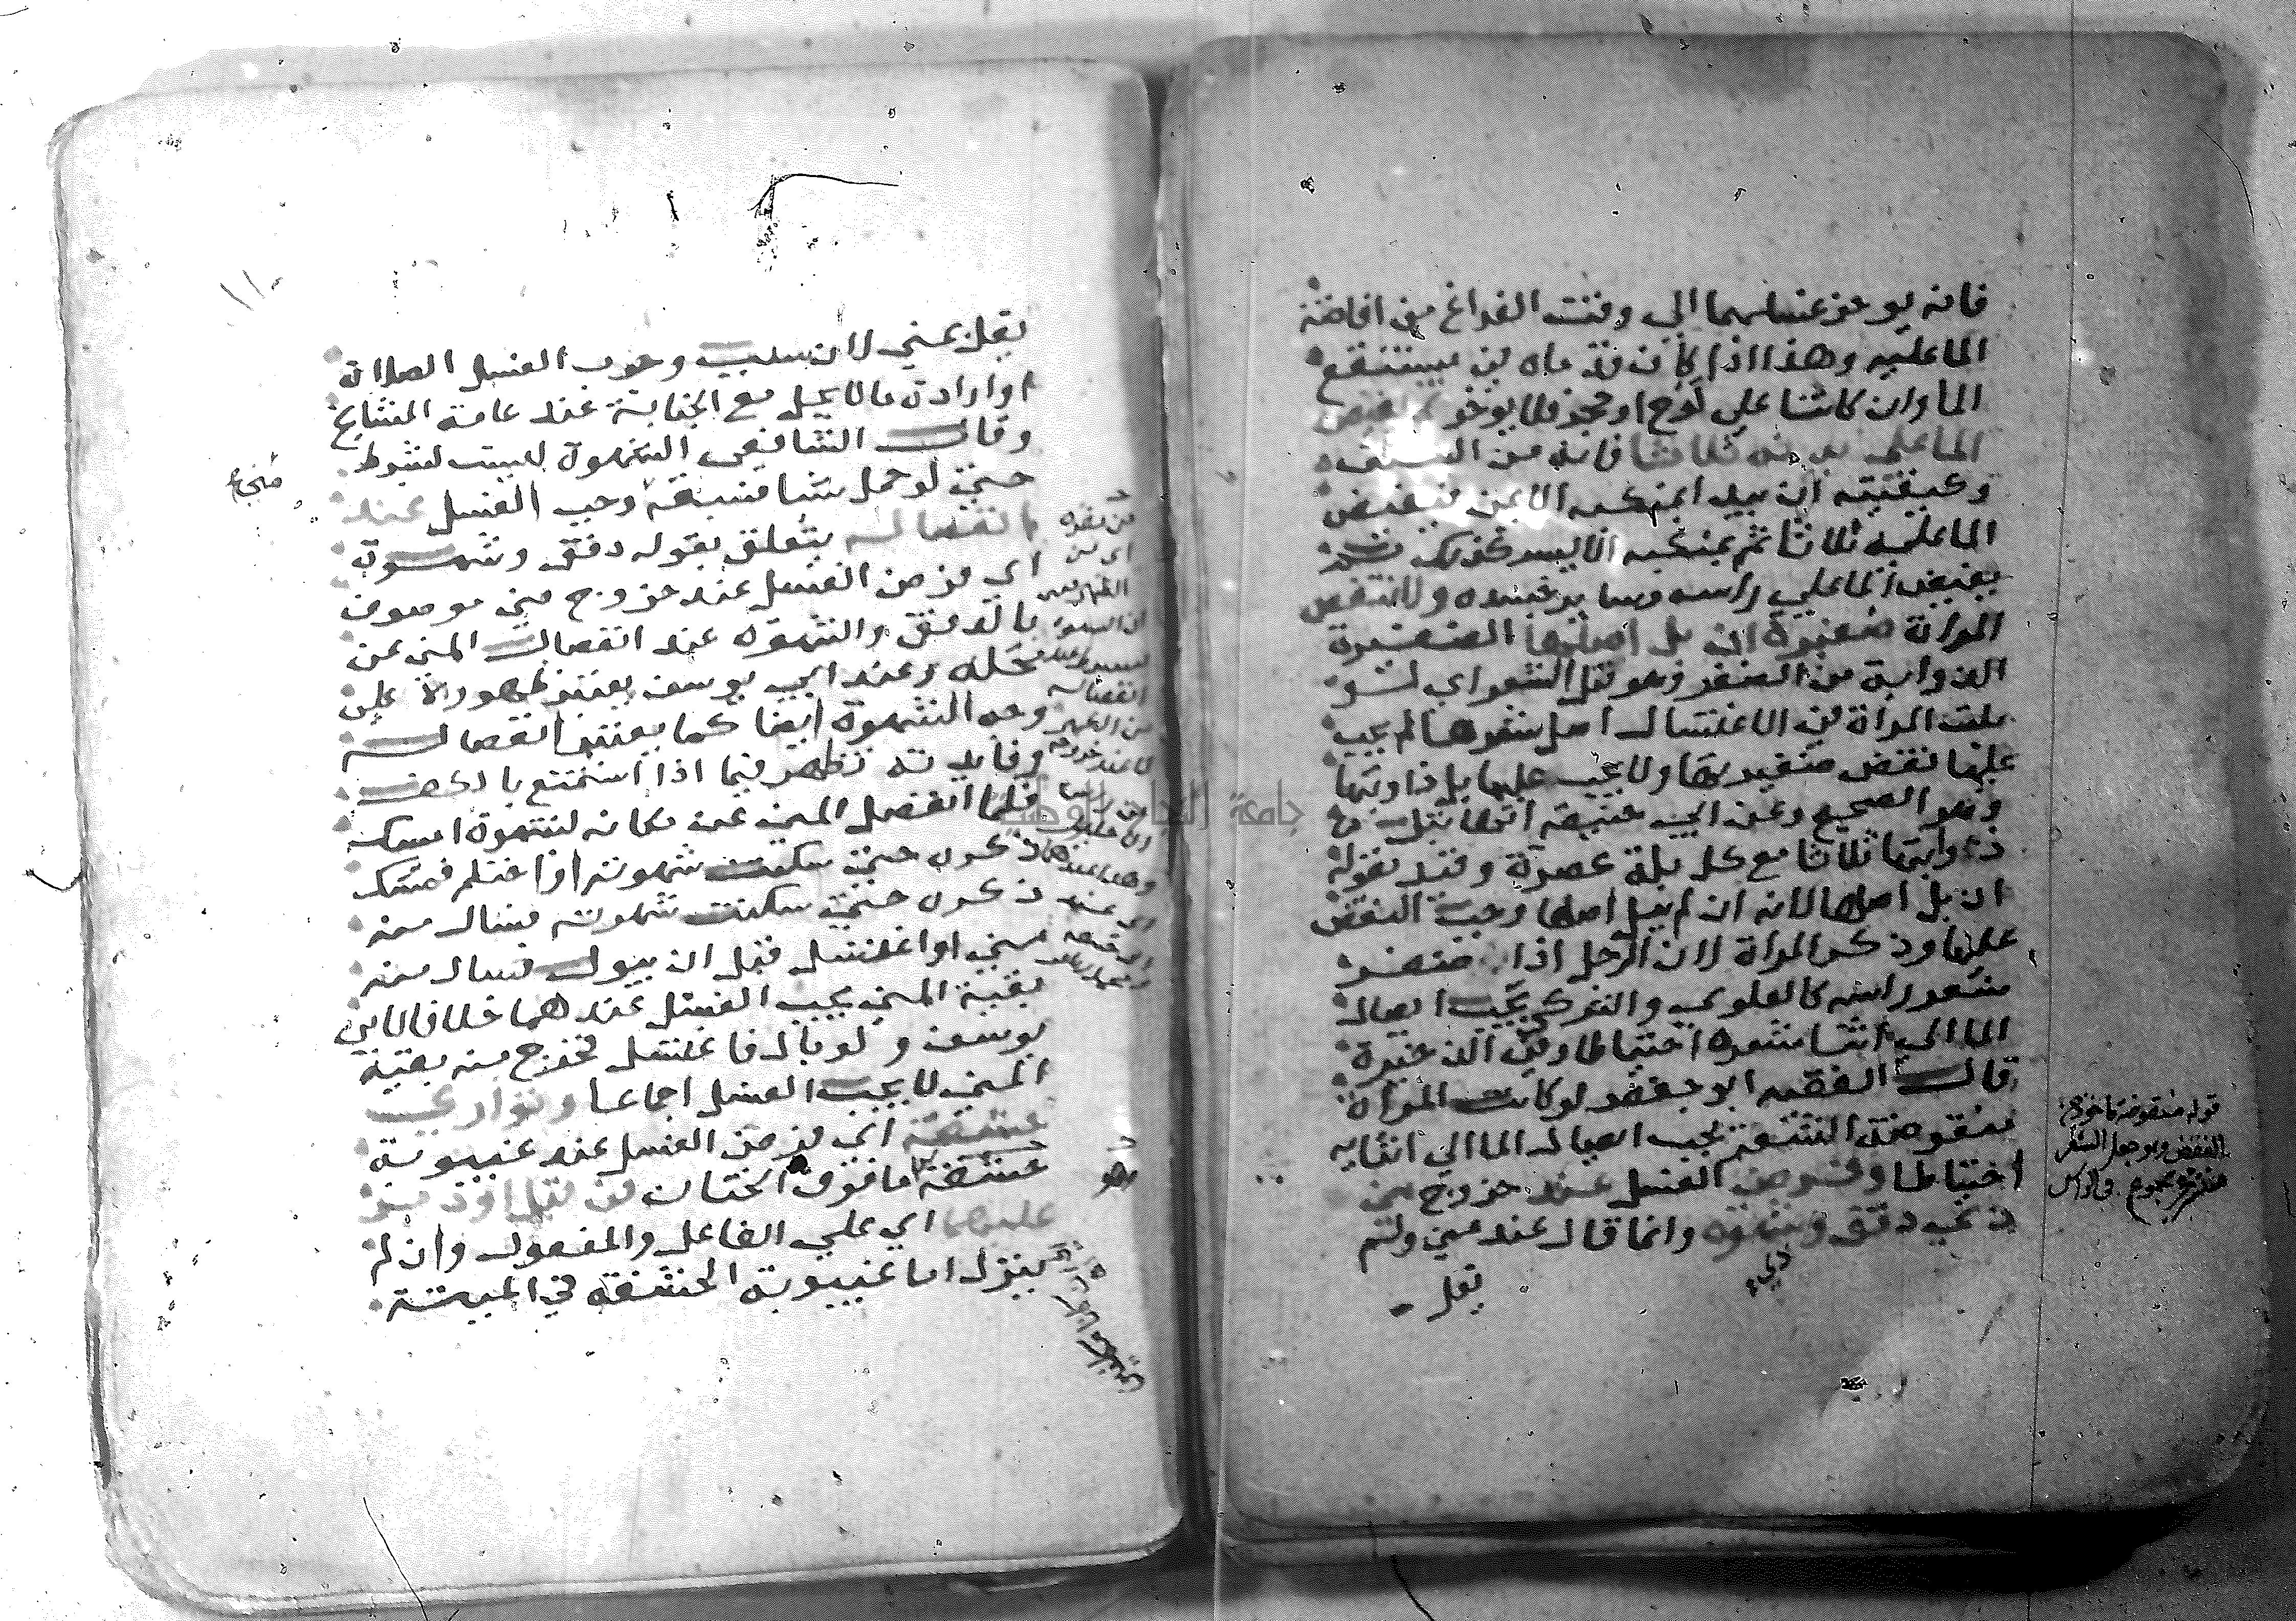 فانه يوخر غسلهما الى وقت الفراغ من افاضة
الما عليه وهذا اذا كان قد ماه في مستنقع
الما وان كانتا على لوح او حجر فلا يوخر ثم يفيض
الما على بدنه ثلاثا فانه من السنن
وكيفيته ان يبدا بمنكبه الايمن فيفيض
الما عليه ثلاثا ثم بمنكبه الايسر كذلك ثم
يفيض الما على راسه وساير جسده ولا تنقض
المراة ضفيرة ان بل اصلها الضفيرة
الذوابة من الضفر وهو فتل الشعر اي لو
بلت المراة في الاغتسال اصل شعرها لم يجب
عليها نقض ضفيرتها ولا يجب عليها بل ذوابتها
وهو الصحيح وعن ابي حنيفة انها تبل
ذوابتها ثلاثا مع كل بلة عصرة وقيد بقوله
ان بل اصلها لانه ان لم يبل اصلها وجب النقض
عليها وذكر المراة لان الرجل اذا ضفر
شعر راسه كالعلوي والتركي يجب ايصال
الما الى اثنا شعره احتياطا وفي الذخيرة
قال الفقيه ابو جعفر لو كانت المراة
منقوضة الشعر يجب ايصال الما الى اثنايه
احتياطا وفرض الغسل عند خروج مني
ذي دفق وشهوة وانما قال عند مني ولم
يقل
ذي
قوله منقوضة ماخوذ من
النقض وهو جعل الشعر
يقل بمني لان سبب وجوب الغسل الصلاة
او ارادة ما لا يحل مع الجنابة عند عامة المشايخ
وقال الشافعي الشهوة ليست بشرط
حتى لو حمل شيا فسبقه وجب الغسل عند
انفصاله يتعلق بقوله دفق وشهوة
اي فرض الغسل عند خروج مني موصوف
بالدفق والشهوة عند انفصال المني عن
محله وعند ابي يوسف يعتبر ظهوره على
وجه الشهوة ايضا كما يعتبر انفصاله
وفايدته تظهر فيما اذا استمتع بالكف
فلما انفصل المني عن مكانه لشهوة امسك
ذكره حتى سكنت شهوته او احتلم فمسك
ذكره حتى سكنت شهوته فسال منه
مني او اغتسل قبل ان يبول فسال منه
بقية المني يجب الغسل عندهما خلافا لابي
يوسف ولو بال فاغتسل فخرج منه بقية
المني لا يجب الغسل اجماعا وتواري
حشفة اي فرض الغسل عند غيبوبة
حشفة ما فوق الختان في قبل او دبر
عليهما اي على الفاعل والمفعول وان لم
ينزل اما غيبوبة الحشفة في البهيمة